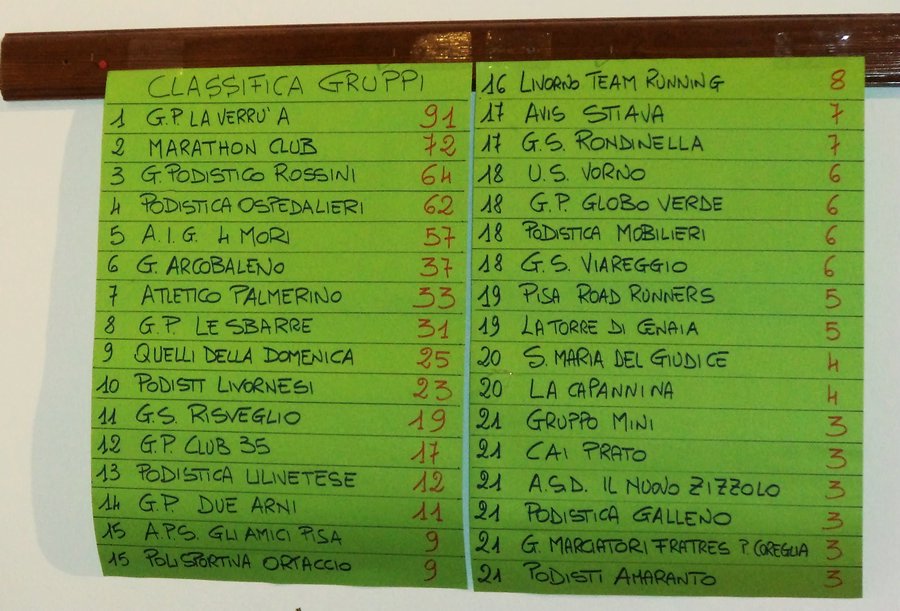 CLASSIFICA GRUPPI
1 G.P LA VERRU'A 91
2 MARATHON CLUB 72
3 G.PODISTICO ROSSINI 64
4 PODISTICA OSPEDALIERI 62
5 A.I.G. 4 MORI 57
6 G. ARCOBALENO 37
7 ATLETICO PALMERINO 33
8 G.P. LE SBARRE 31
9 QUELLI DELLA DOMENICA 25
10 PODISTI LIVORNESI 23
11 G.S. RISVEGLIO 19
12 G.P. CLUB 35 17
13 PODISTICA ULIVETESE 12
14 G.P. DUE ARNI 11
15 A.P.S. GLI AMICI PISA 9
15 POLISPORTIVA ORTACCIO 9
16 LIVORNO TEAM RUNNING 8
17 AVIS STIAVA 7
17 G.S. RONDINELLA 7
18 U.S. VORNO 6
18 G.P. GLOBO VERDE 6
18 PODISTICA MOBILIERI 6
18 G.S. VIAREGGIO 6
19 PISA ROAD RUNNERS 5
19 LA TORRE DI CENAIA 5
20 S. MARIA DEL GIUDICE 4
20 LA CAPANNINA 4
21 GRUPPO MINI 3
21 CAI PRATO 3
21 A.S.D. IL NUOVO ZIZZOLO 3
21 PODISTICA GALLENO 3
21 G. MARCIATORI FRATRES P. COREGLIA 3
21 PODISTI AMARANTO 3